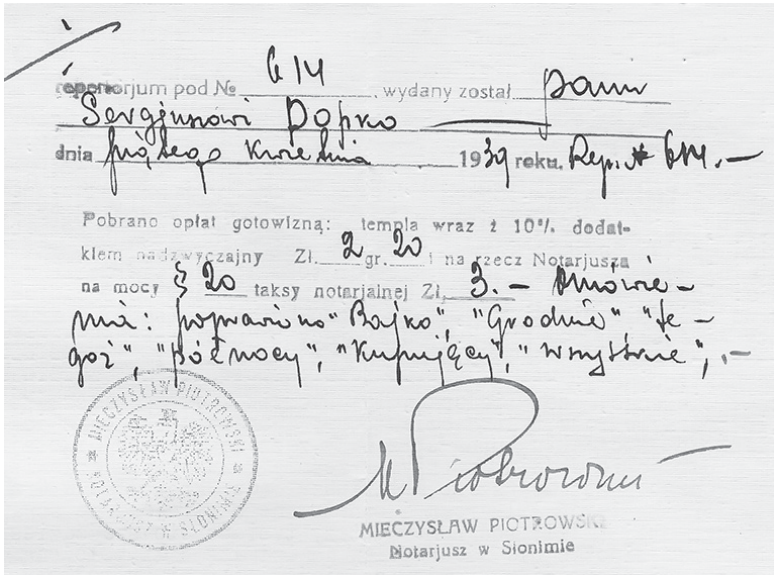 repertorjum pod № 614, wydany został panu
Sergjuszowi Dopko
dnia piątego kwietnia 1939 roku. Rep. № 614.—
Pobrano opłat gotowizną: templa wraz z 10% dodat-
kiem nadzwyczajny Zł. 2 gr. 20 i na rzecz Notarjusza
na mocy § 20 taksy notarjalnej Zł. 3.— Omówie-
nia: poprawiono "Bajko", "Grodnie", "te-
goż", "północy", "kupujący", "wszystkie",.—
MIECZYSŁAW PIOTROWSKI
NOTARJUSZ W SŁONIMIE
M Piotrowski
MIECZYSŁAW PIOTROWSKI
Notarjusz w Słonimie